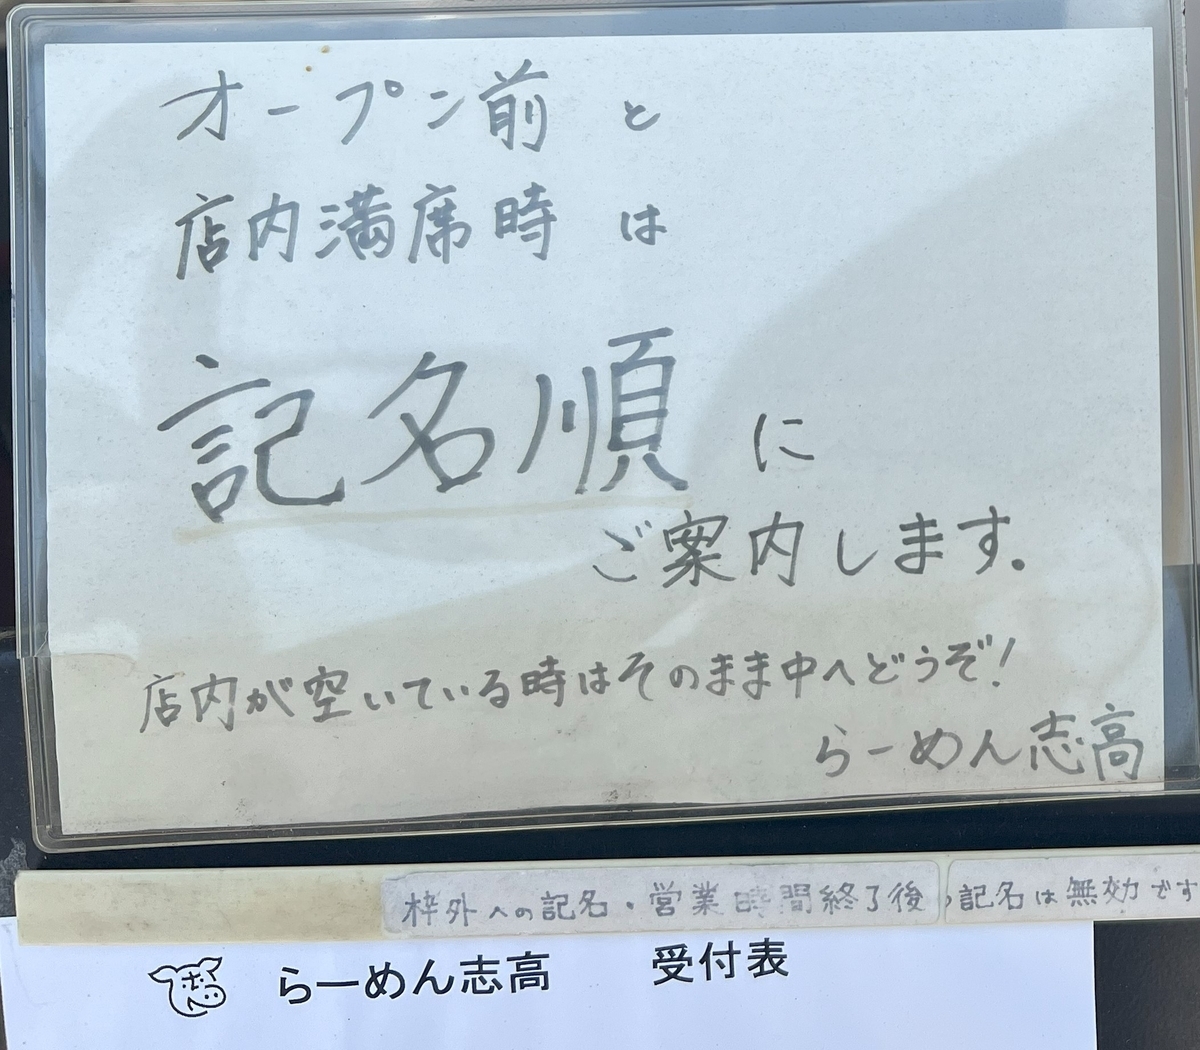 オープン前 と
店内満席時 は
記名順 に
ご案内します.
店内が空いている時はそのまま中へどうぞ!
らーめん志高
枠外への記名・営業時間終了後の記名は無効です
らーめん志高 受付表